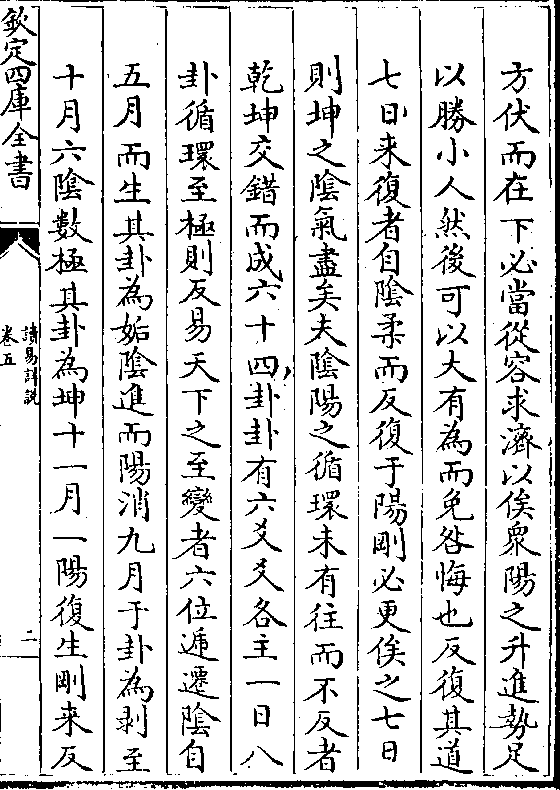 方伏而在下必當從容求濟以俟衆陽之升進勢足
以勝小人然後可以大有為而免咎悔也反復其道
七日来復者自陰柔而反復于陽剛必更俟之七日
則坤之陰氣盡矣夫陰陽之循環未有往而不反者
乾坤交錯而成六十四卦卦有六爻爻各主一日八
卦循環至極則反易天下之至變者六位遞遷陰自
五月而生其卦為姤陰進而陽消九月于卦為剥至
十月六陰數極其卦為坤十一月一陽復生剛来反
欽定四庫全書
讀易詳說
卷五
二